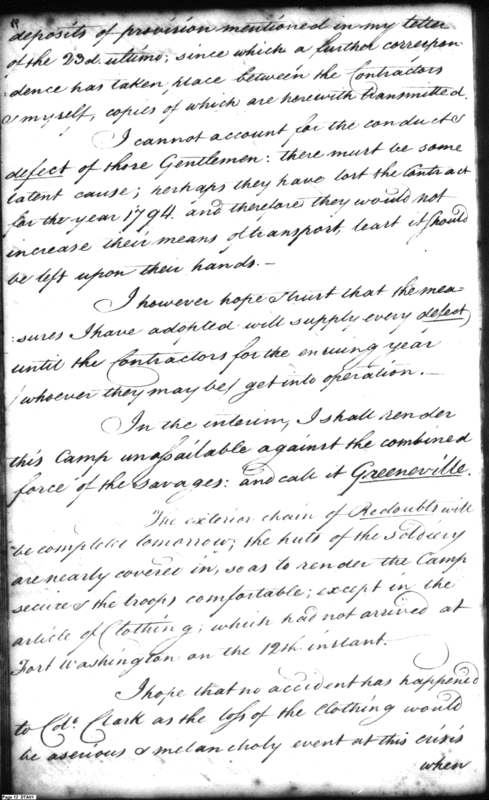 deposits of provision mentioned in my letter
of the 23d ultimo; since which a further correspon
dence has taken place between the Contractors
& myself, copies of which are herewith transmitted.
I cannot account for the conduct &
defect of those Gentlemen: there must be some
latent cause; perhaps they have lost the Contract
for the year 1794. and therefore they would not
increase their means of transport, least it should
be left upon their hands.—
I however hope & trust that the mea=
:sures I have adopted will supply every defect,
until the Contractors for the ensuing year
(whoever they may be) get into operation.—
In the interim, I shall render
this Camp unassailable against the combined
force of the savages: and call it Greeneville.
The exterior chain of Redoubts will
be complete tomorrow; the huts of the soldiery
are nearly covered in, so as to render the Camp
secure & the troops comfortable; except in the
article of Clothing; which had not arrived at
Fort Washington on the 12th instant.
I hope that no accident has happened
to Cdr. Clark as the loss of the Clothing would
be a serious & melancholy event at this crisis
when
Page 12 START